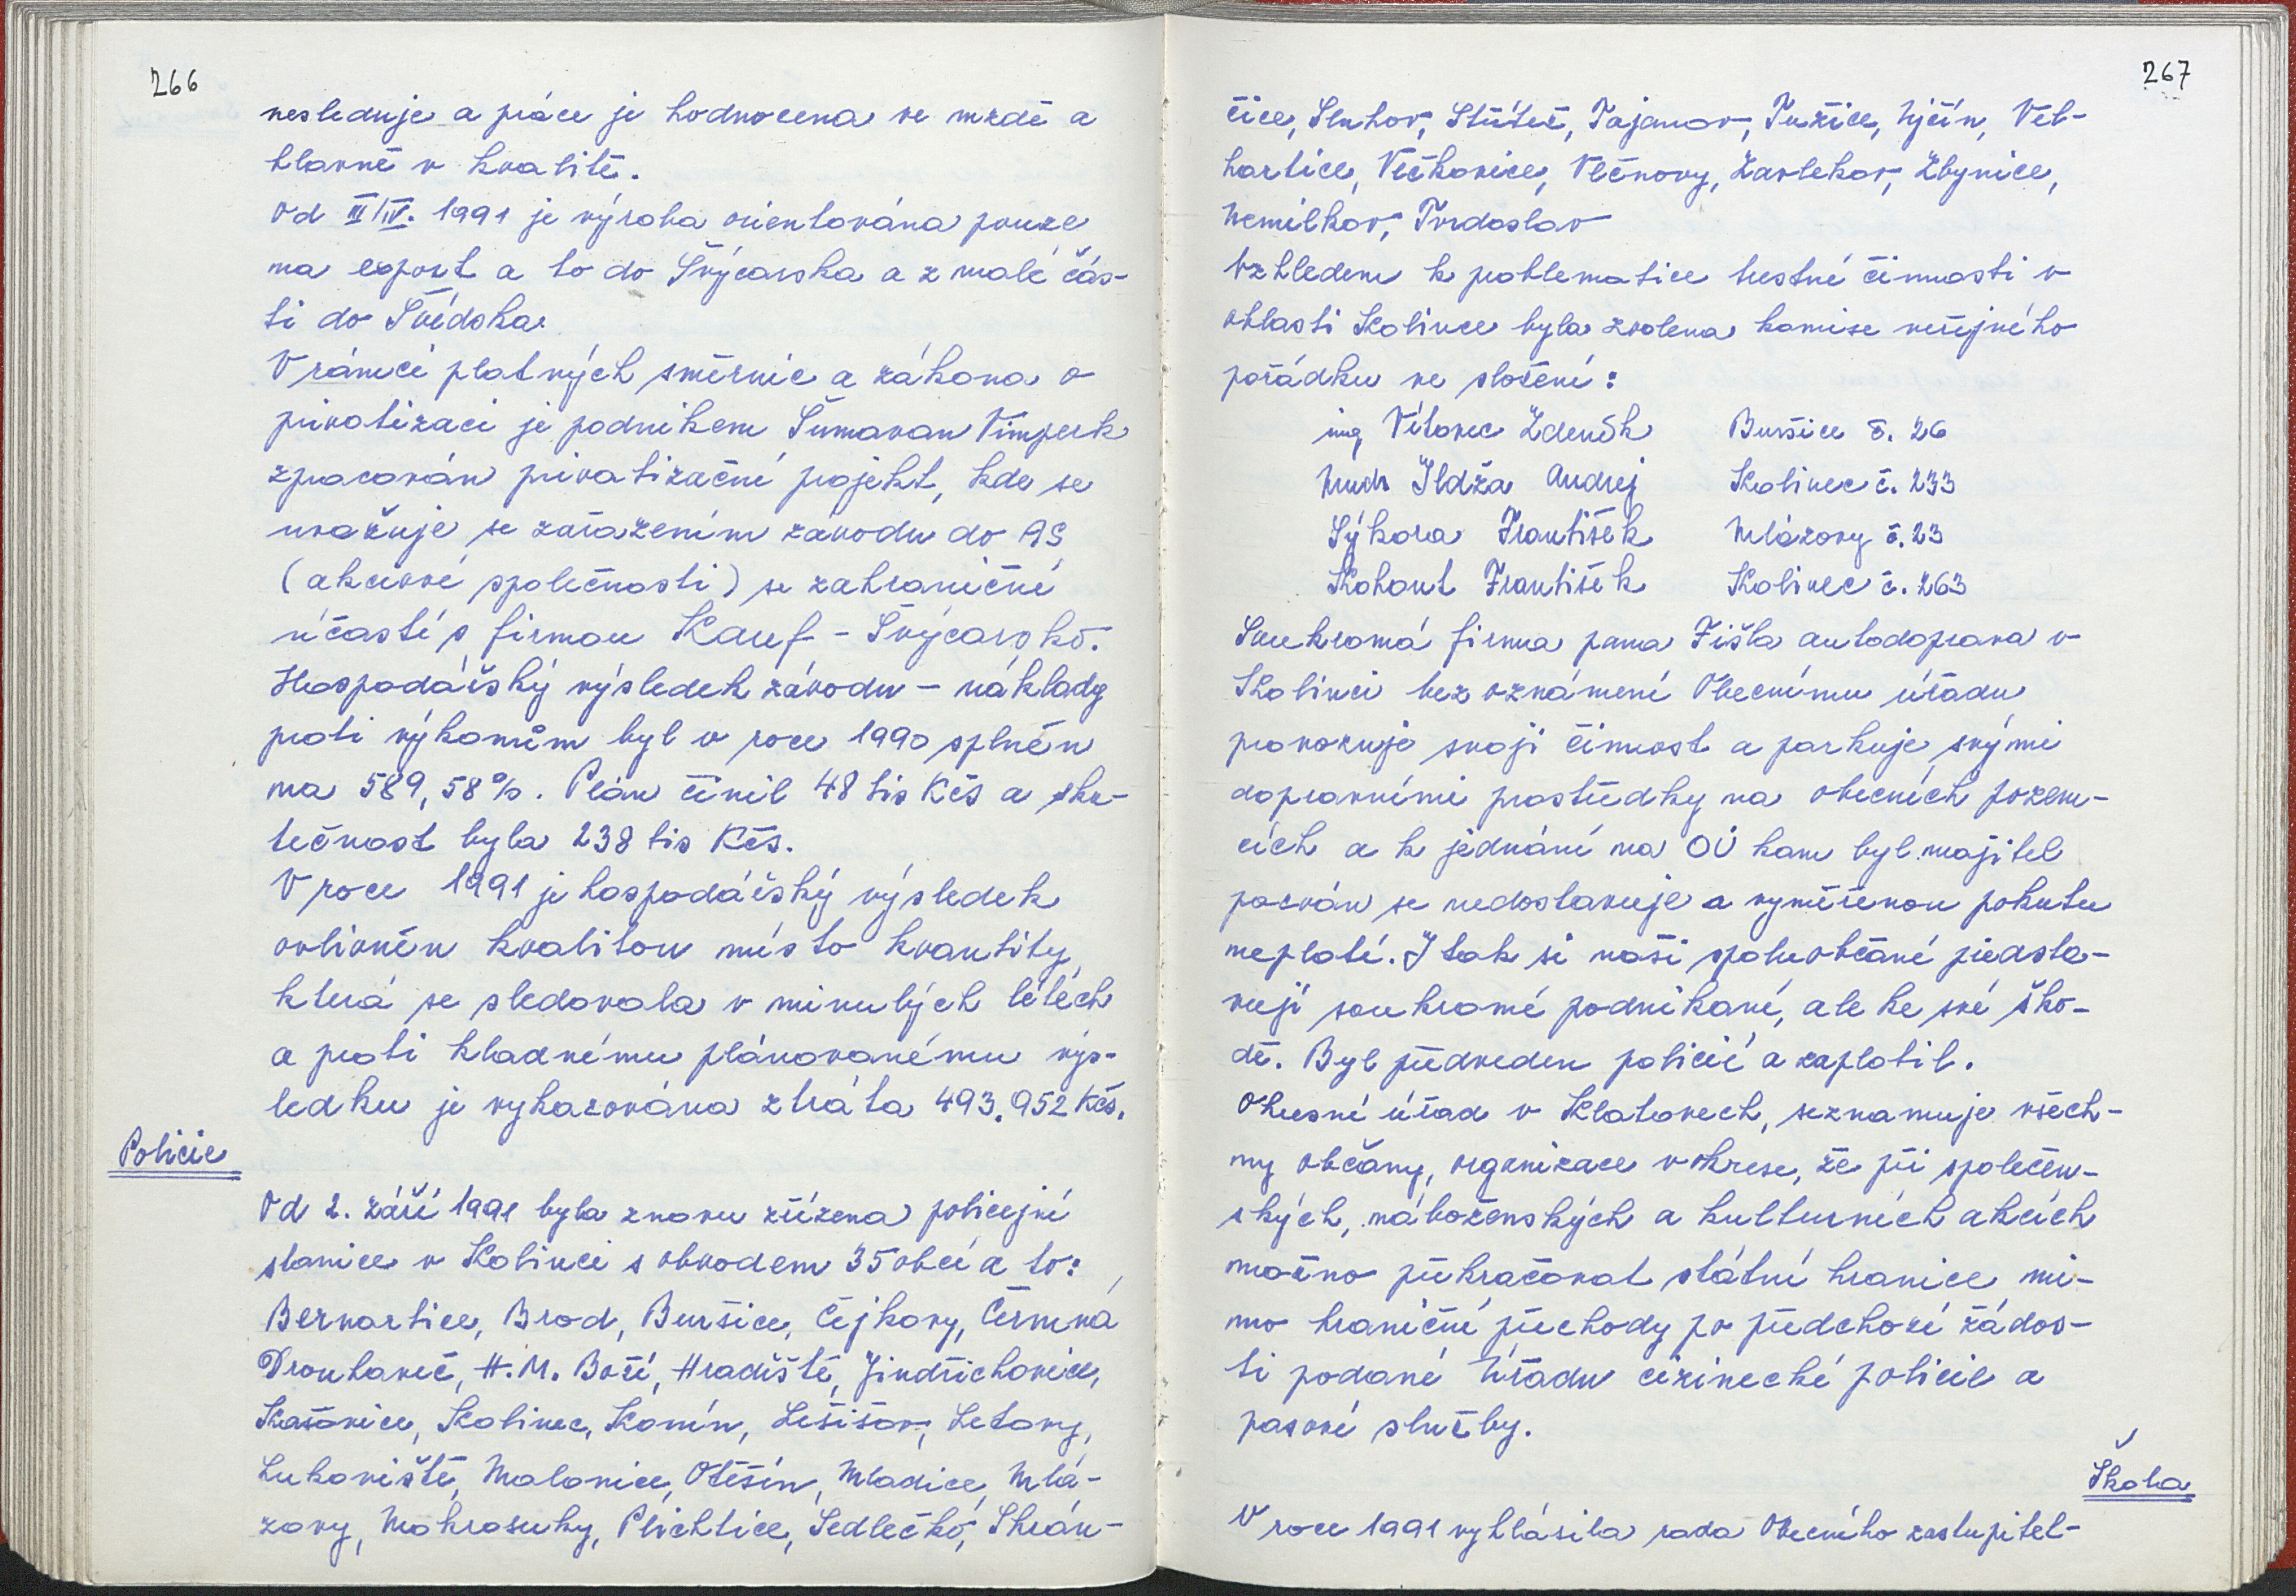 266
nesleduje a práce je hodnocena ve mzdě a
hlavně v kvalitě.
Od III/IV. 1991 je výroba orientována pouze
na export a to do Švýcarska a z malé čás-
ti do Švédska.
V rámci platných směrnic a zákona o
privatizaci je podnikem Šumavan Vimperk
zpracován privatizační projekt, kde se
uvažuje se zařazením závodu do AS
(akciové společnosti) se zahraniční
účastí s firmou Kauf - Švýcarsko.
Hospodářský výsledek závodu - náklady
proti výkonům byl v roce 1990 splněn
na 589,58%. Plán činil 48 tis Kčs a sku-
tečnost byla 238 tis Kčs.
V roce 1991 je hospodářský výsledek
ovlivněn kvalitou místo kvantity,
která se sledovala v minulých létech
a proti kladnému plánovanému výs-
ledku je vykazována ztráta 493.952 Kčs.
Policie
Od 2. září 1991 byla znovu zřízena policejní
stanice v Kolinci s obvodem 35 obcí a to:
Bernartice, Brod, Buršice, Čejkovy, Čermná
Drouhaveč, H.M. Boří, Hradiště, Jindřichovice,
Kašovice, Kolinec, Konín, Lešišov, Letovy,
Lukoviště, Malonice, Otěšín, Mladice, Mlá-
zovy, Mokrosuky, Plichtice, Sedlečko, Skrán-
267
čice, Sluhov, Střítež, Tajanov, Tužice, Ujčín, Vel-
hartice, Věčkovice, Vlčnovy, Zavlekov, Zbynice,
Nemilkov, Tvrdoslav
Vzhledem k problematice trestné činnosti v
oblasti Kolince byla zvolena komise veřejného
pořádku ve složení:
ing Vítovec Zdeněk Buršice č. 26
Mudr Ildža Andrej Kolinec č. 233
Sýkora František Mlázovy č. 23
Kohout František Kolinec č. 263
Soukromá firma pana Fišla autodoprava v
Kolinci bez oznámení Obecnímu úřadu
provozuje svoji činnost a parkuje svými
dopravními prostředky na obecních pozem-
cích a k jednání na OÚ kam byl majitel
pozván se nedostavuje a vyměřenou pokutu
neplatí. I tak si naši spoluobčané předsta-
vují soukromé podnikaní, ale ke své ško-
dě. Byl předveden policií a zaplatil.
Okresní úřad v Klatovech, seznamuje všech-
ny občany, organizace v okrese, že při společen-
ských, náboženských a kulturních akcích
možno překračovat státní hranice mi-
mo hraniční přechody po předchozí žádos-
ti podané Úřadu cizinecké policie a
pasové služby.
Škola
V roce 1991 vyhlásila rada Obecního zastupitel-